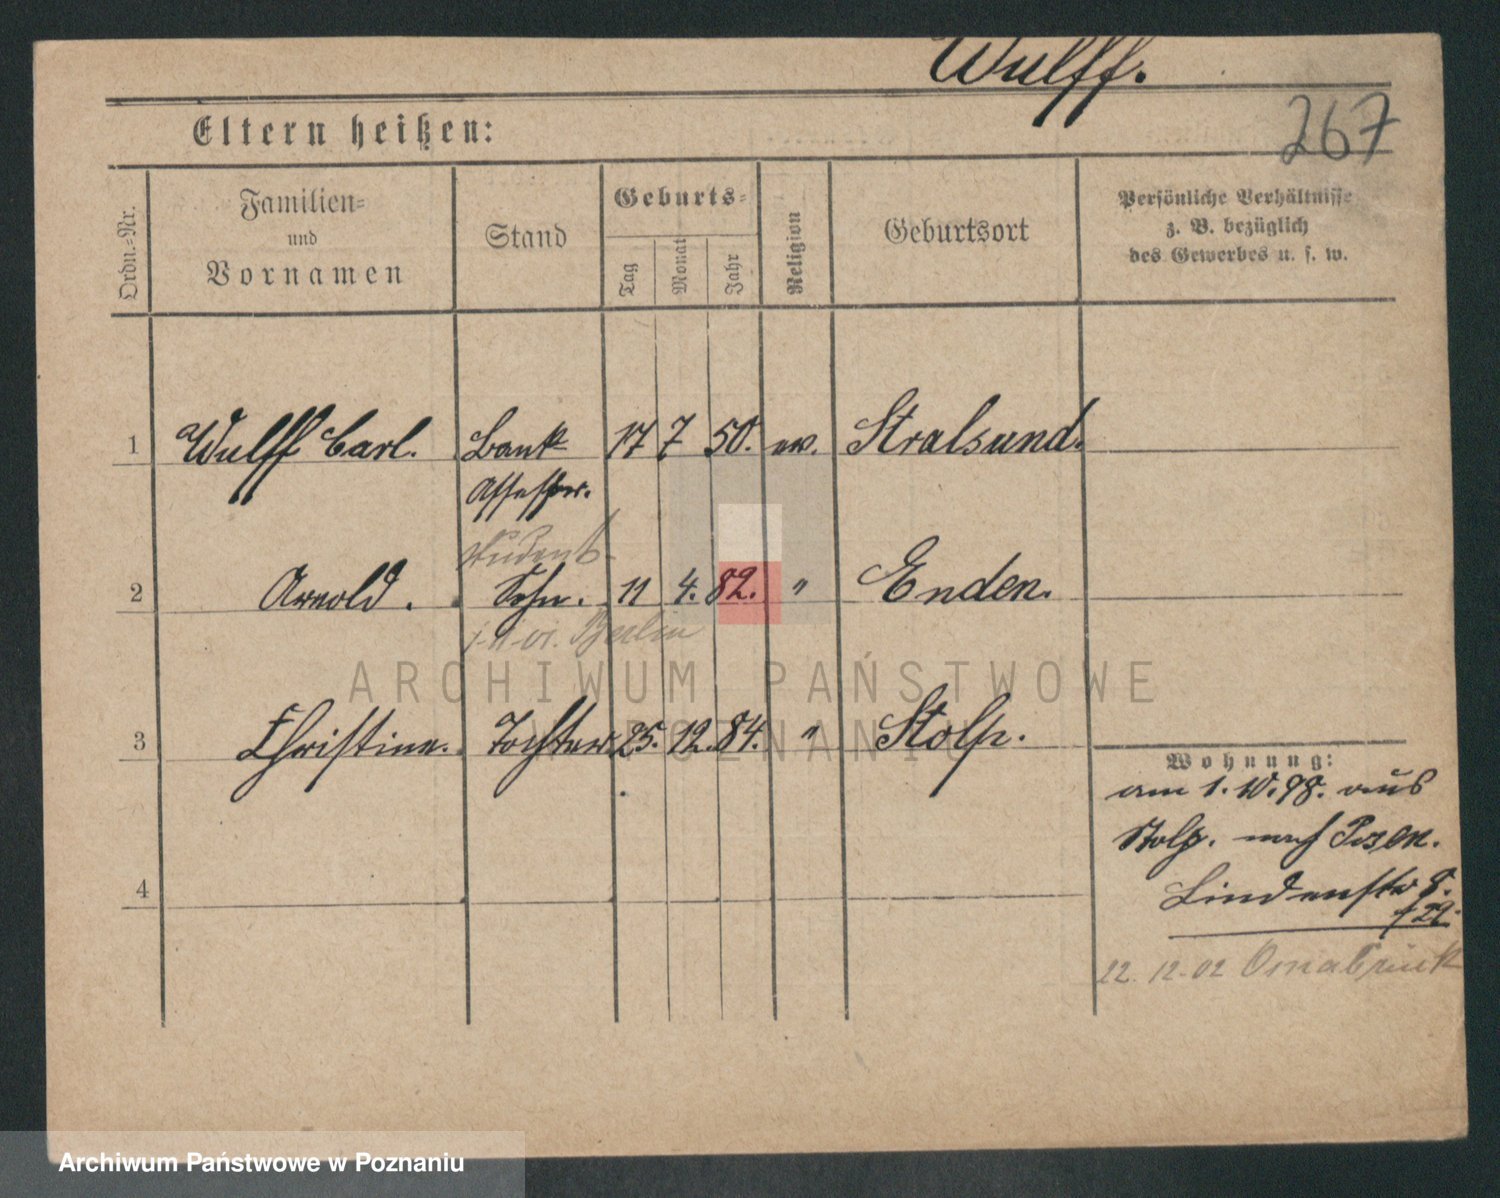 Wulff.
267
Eltern heißen:
Ordn.-Nr.
Familien- und Vornamen
Stand
Geburts-
Tag
Monat
Jahr
Religion
Geburtsort
Persönliche Verhältnisse
z. B. bezüglich
des Gewerbes u. s. w.
1 Wulff Carl. Bank 17 7 50. ev. Stralsund.
Assessor.
student
2 Arnold. Sohn. 11 4. 82. " Enden.
Berlin
ARCHIWUM PAŃSTWOWE
W POZNANIU
3 Christine. Tochter 25. 12. 84. " Stolp.
Wohnung:
am 1. 10. 98. aus
Stolp. nach Posen.
4
Lindenstr 8.
f 29.
22. 12. 02 Osnabrück
Archiwum Państwowe w Poznaniu